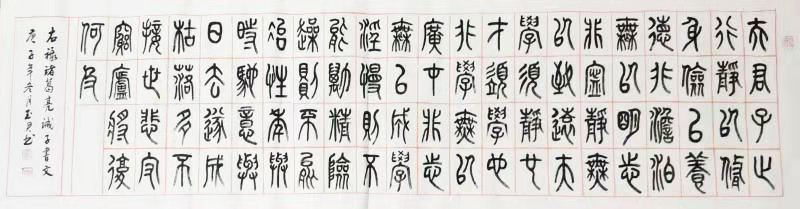 夫君子之
行靜以修
身儉以養
德非澹泊
無以明志
非寧靜無
以致遠夫
學須靜也
才須學也
非學無以
廣才非志
無以成學
淫慢則不
能勵精險
躁則不能
治性年與
時馳意與
日去遂成
枯落多不
接世悲守
窮廬將復
何及
右錄諸葛亮誡子書文
庚子年冬月玉書